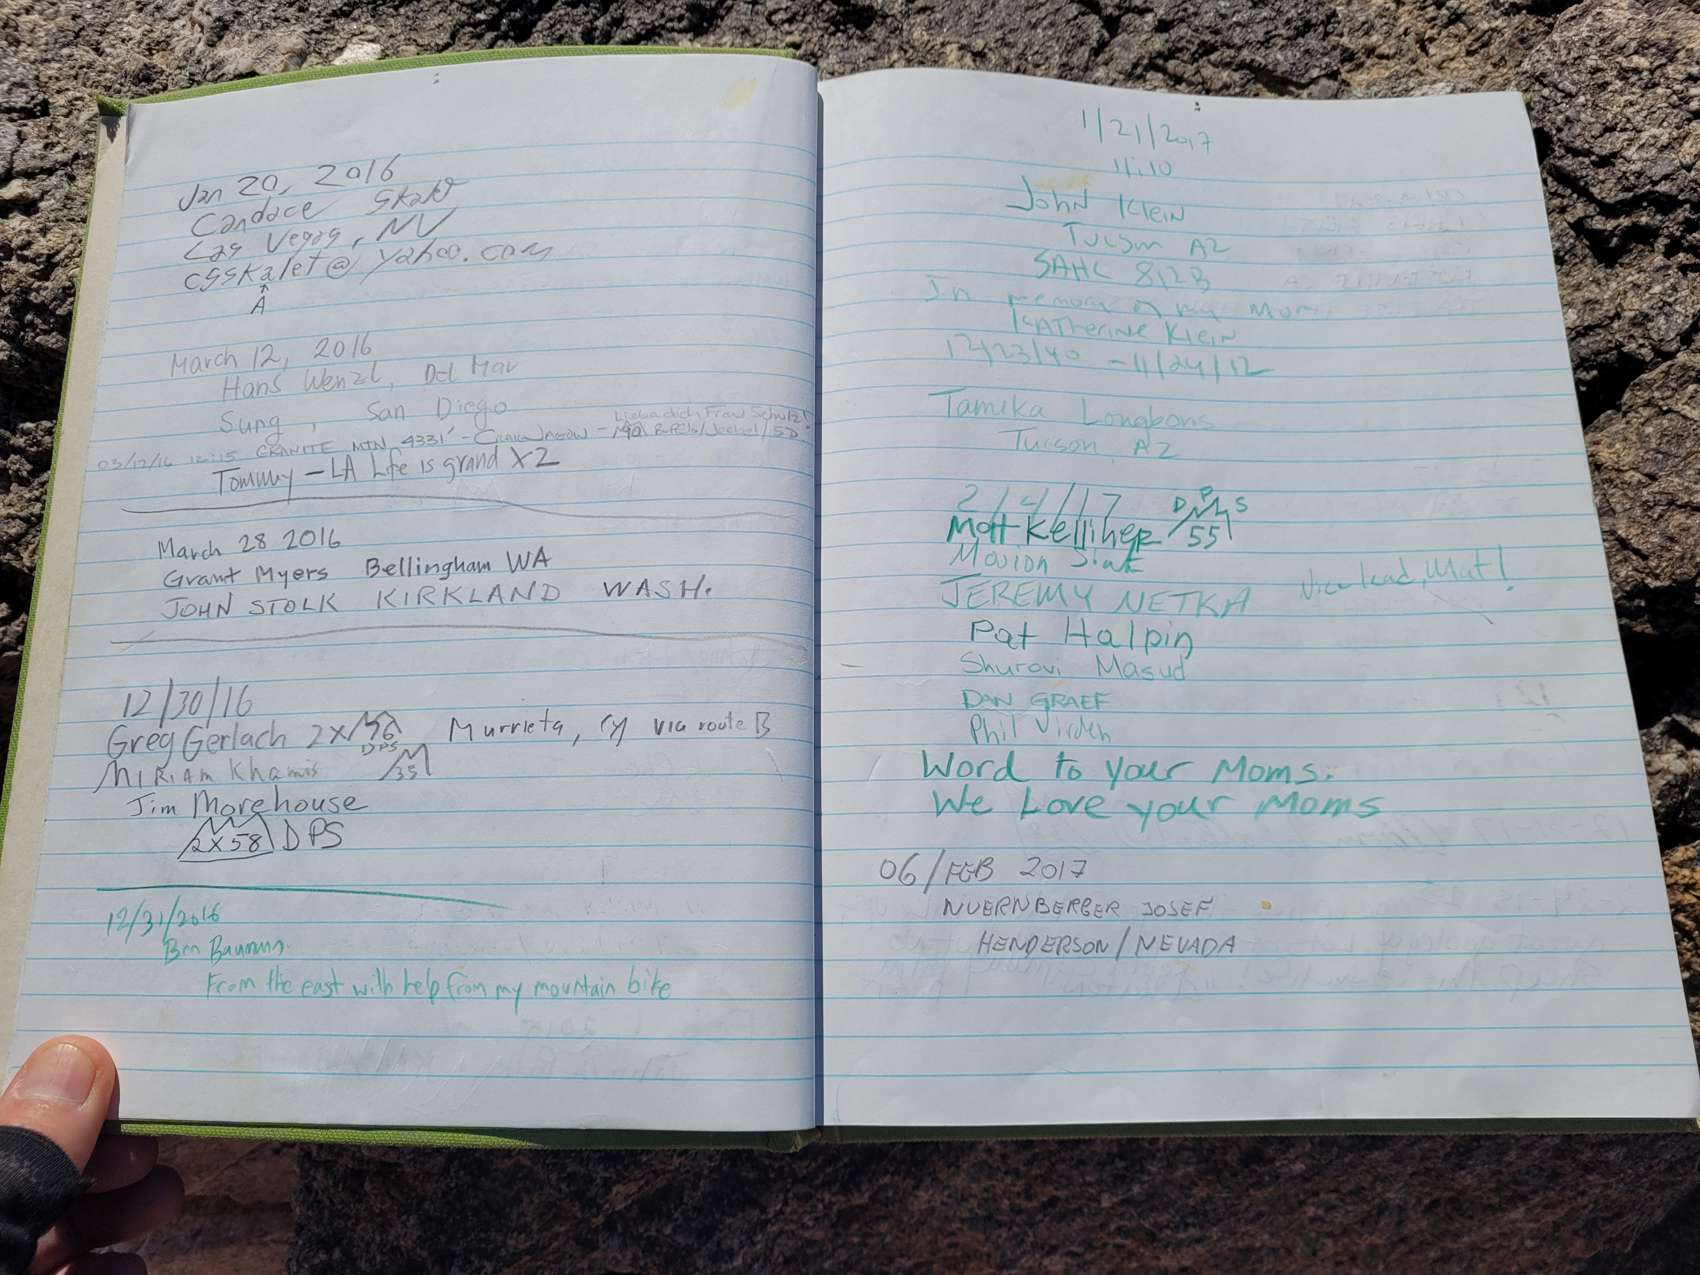 Jan 20, 2016
Candace
Las Vegas, NV
csskalet@yahoo.com
A
March 12, 2016
Hans Wenzl, Del Mar
Sung, San Diego
03/12/16 12:15 GRANITE MTN 4331' -
Tommy - LA Life is grand X2
March 28 2016
Grant Myers Bellingham WA
JOHN STOLK KIRKLAND WASH.
12/30/16
Greg Gerlach 2X DPS Murrieta, via route B
MIRIAM Khamis 35
Jim Morehouse
2X58 DPS
12/31/2016
Ben
From the east with help from my mountain bike
1/21/2017
11:10
John Klein
Tucson AZ
SAHC
In memory of my Mom
KATHERINE KLEIN
12/23/40 - 11/24/12
Tamika Longbons
Tucson, AZ
2/4/17 DPS
Matt Kelliher 55
JEREMY NETKA
Pat Halpin
Shuravi Masud
DAN GRAEF
Phil Virden
Word to your Moms.
We Love your Moms
06/FEB 2017
NUERNBERGER JOSEF
HENDERSON/NEVADA